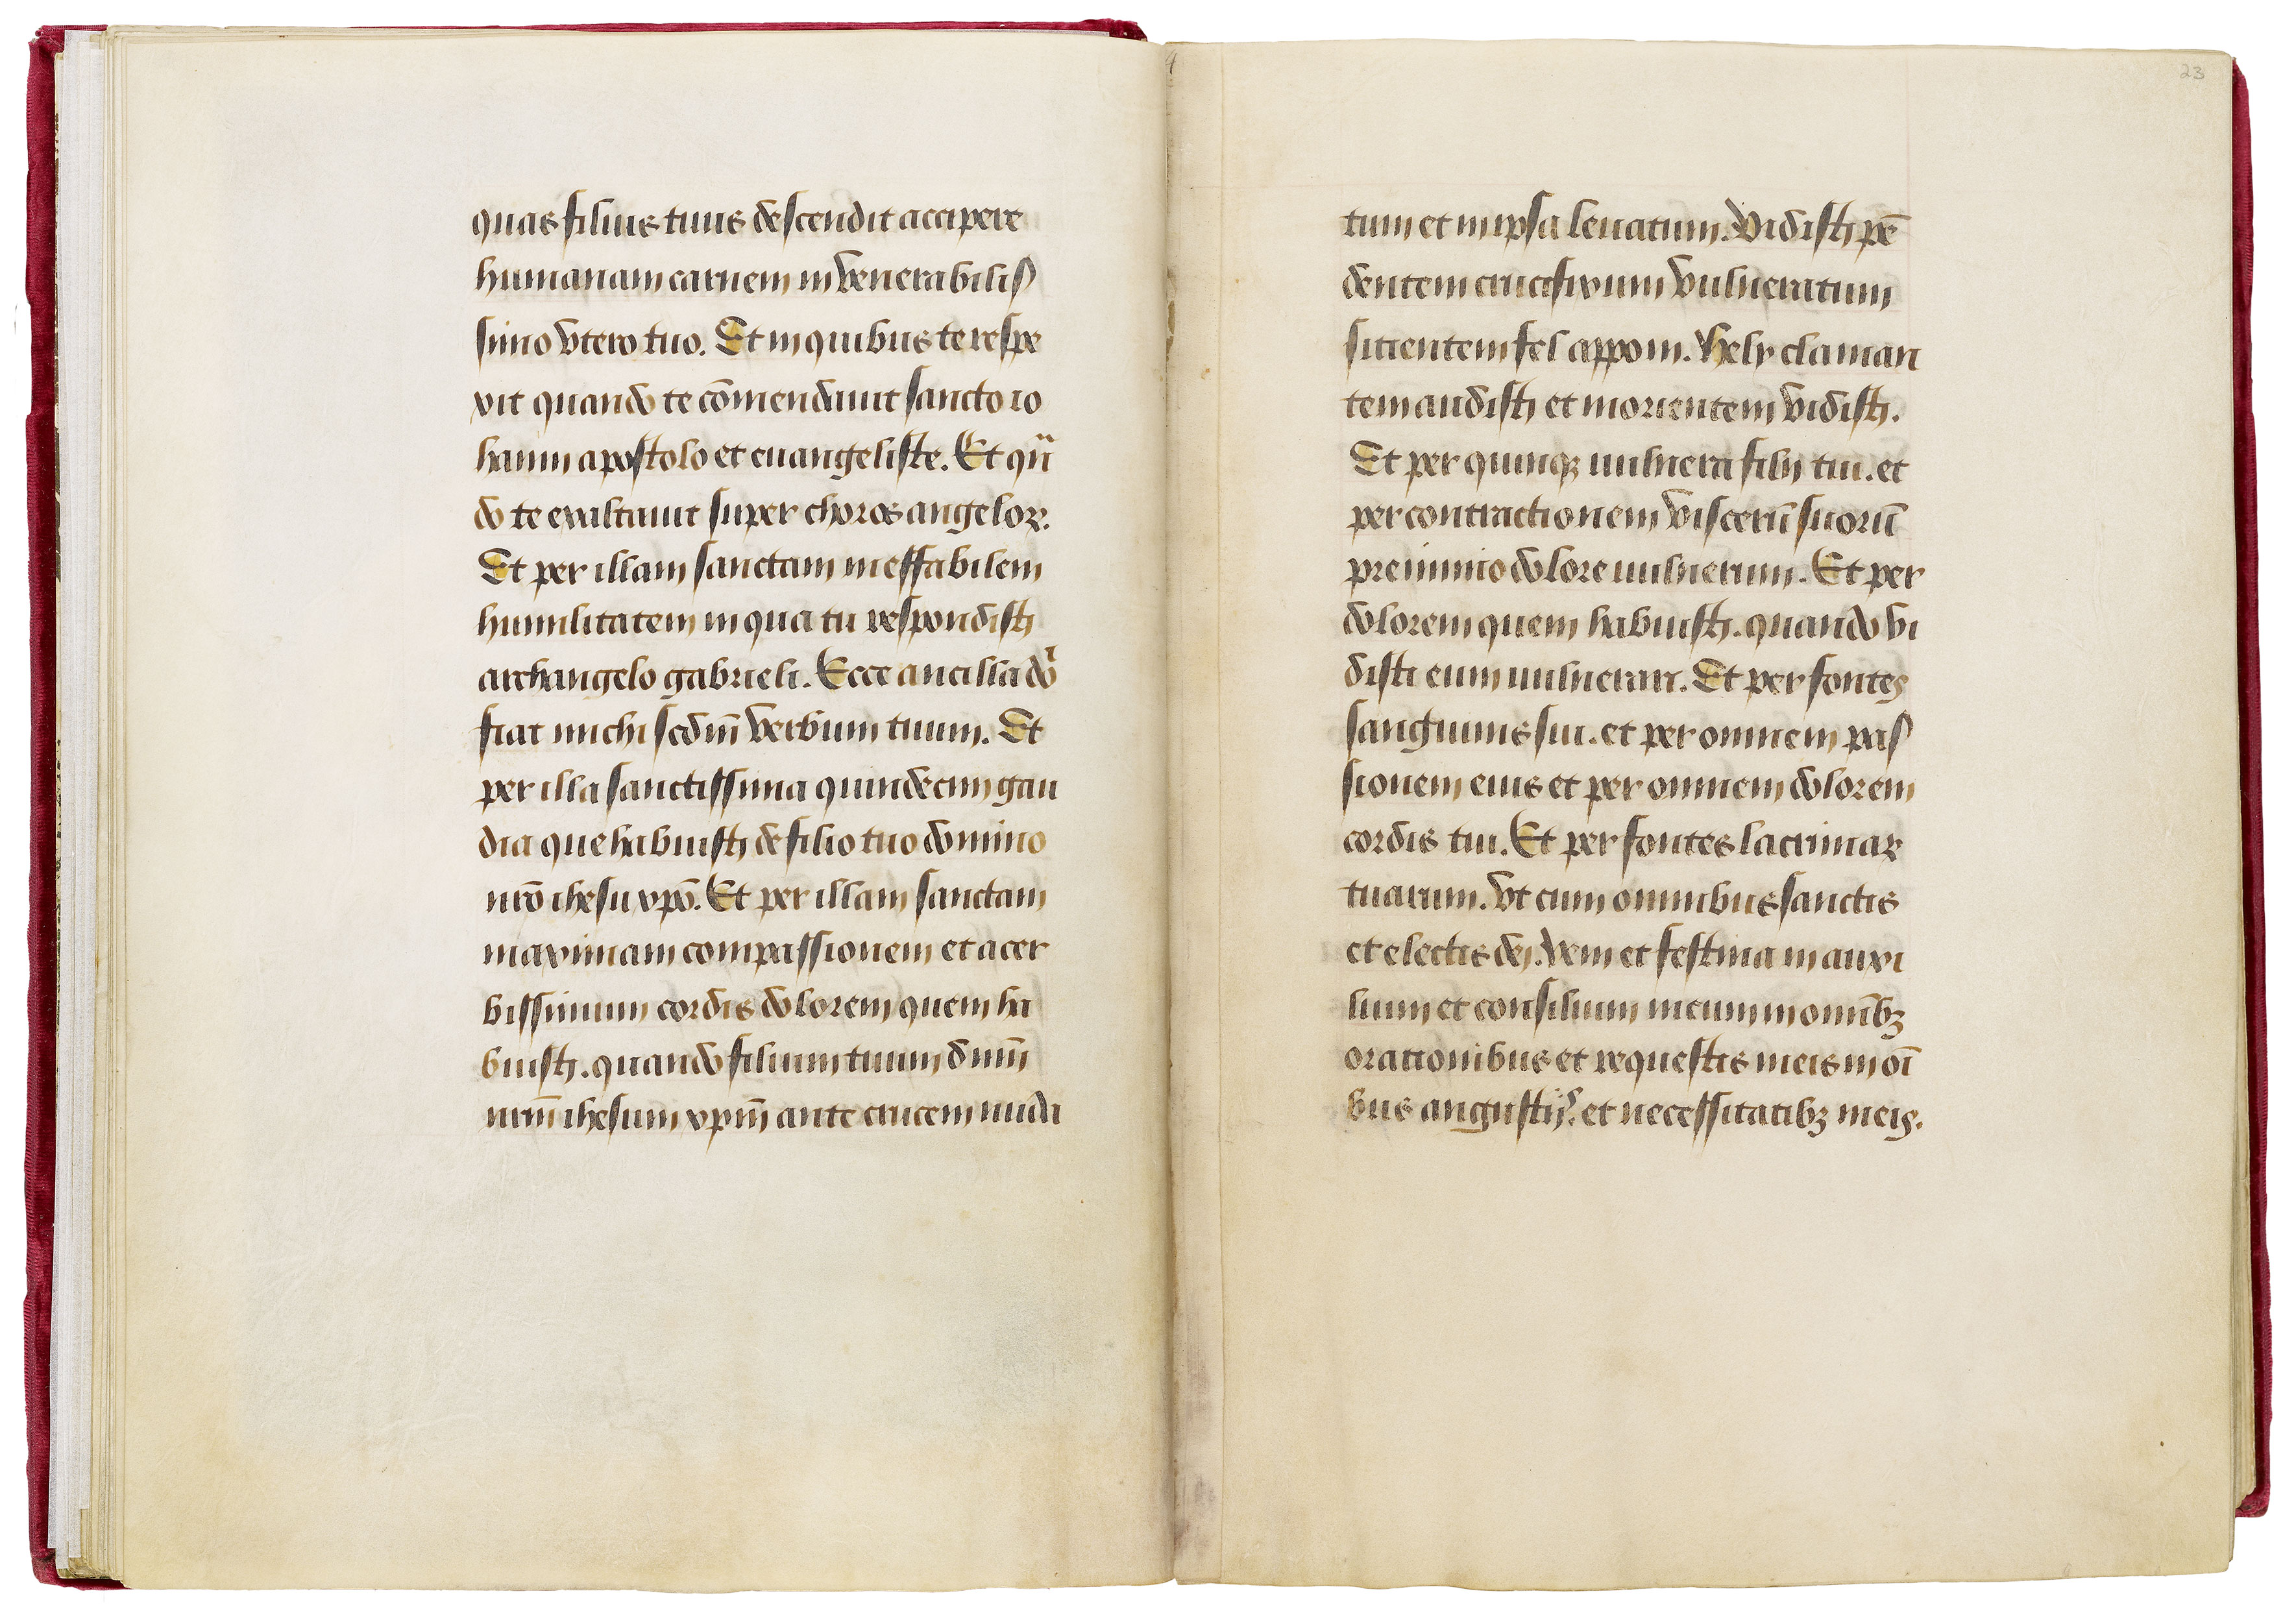 quas filius tuus descendit accipere
humanam carnem in venerabilis
simo vtero tuo. Et in quibus te respe
xit quando te cōmendauit sancto io
hanni apostolo et euangeliste. Et qū
do te exaltauit super choros angeloꝝ.
Et per illam sanctam ineffabilem
humilitatem in qua tu respondisti
archangelo gabrieli. Ecce ancilla dōi
fiat michi scdm̄ verbum tuum. Et
per illa sanctissima quindecim gau
dia que habuisti de filio tuo domino
nr̄o ihesu xpō. Et per illam sanctam
maximam compassionem et acer
bissimum cordis dolorem quem ha
buisti. quando filium tuum dnm̄
nrm̄ ihesum xpm̄ ante crucem nuda
23
tum et in ipsa leuatum. Vidisti pē
dentem crucifixum vulneratum
sitientem fel apponi. Hely claman
tem audisti et morientem vidisti.
Et per quinqꝫ uulnera filij tui. et
per contractionem viscerū suorū
pre nimio dolore uulnerum. Et per
dolorem quem habuisti. quando vi
disti eum uulnerari. Et per fontes
sanguinis sui. et per omnem pas
sionem eius et per omnem dolorem
cordis tui. Et per fontes lacrimaꝝ
tuarum. vt cum omnibus sanctis
et electis dei. veni et festina in auxi
lium et consilium meum in omībꝫ
orationibus et requestis meis in oī
bus angustijs. et necessitatibꝫ meis.